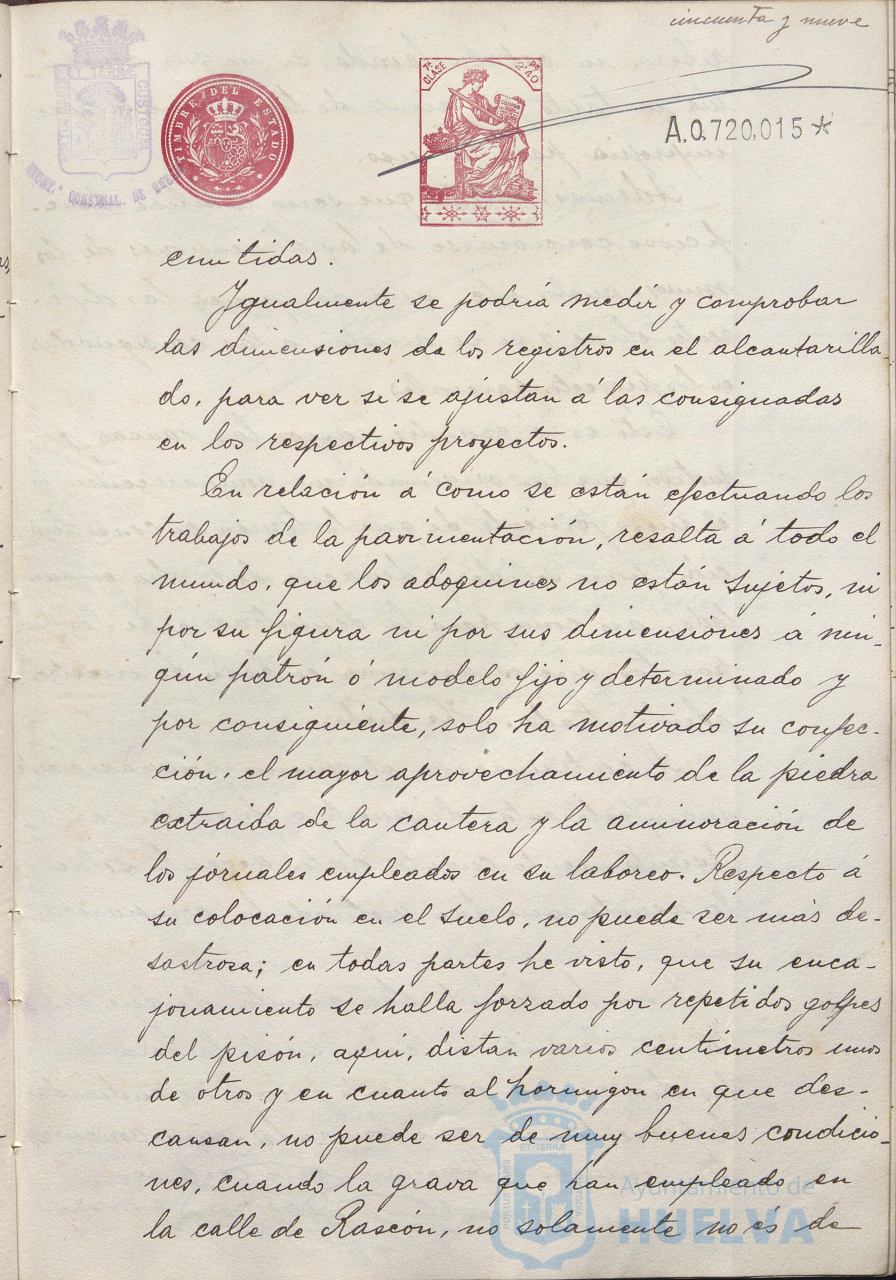 cincuenta y nueve
TIMBRE DEL ESTADO
7ª CLASE
2'40
A.0.720,015*
emitidas.
Igualmente se podría medir y comprobar
las dimensiones de los registros en el alcantarilla-
do, para ver si se ajustan á las consignadas
en los respectivos proyectos.
En relación á como se están efectuando los
trabajos de la pavimentación, resalta á todo el
mundo, que los adoquines no están sujetos, ni
por su figura ni por sus dimensiones á nin-
gún patrón ó modelo fijo y determinado y
por consiguiente, solo ha motivado su confec-
ción, el mayor aprovechamiento de la piedra
extraida de la cantera y la aminoración de
los jornales empleados en su laboreo. Respecto á
su colocación en el suelo, no puede ser más de-
sastrosa; en todas partes he visto, que su enca-
jonamiento se halla forzado por repetidos golpes
del pisón, aquí, distan varios centímetros unos
de otros y en cuanto al hormigon en que des-
cansan, no puede ser de muy buenas condicio-
nes, cuando la grava que han empleado en
la calle de Rascón, no solamente no és de
Ayuntamiento de
HUELVA